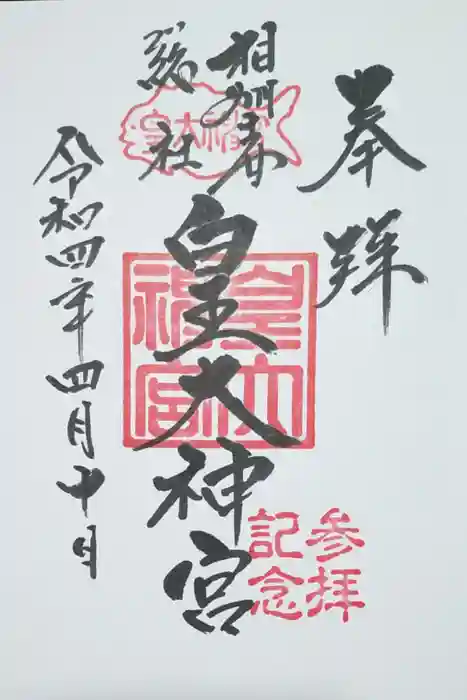 奉拝
相州
総社
皇大神宮
皇大神宮
皇大
神宮
参拝
記念
令和四年四月十日